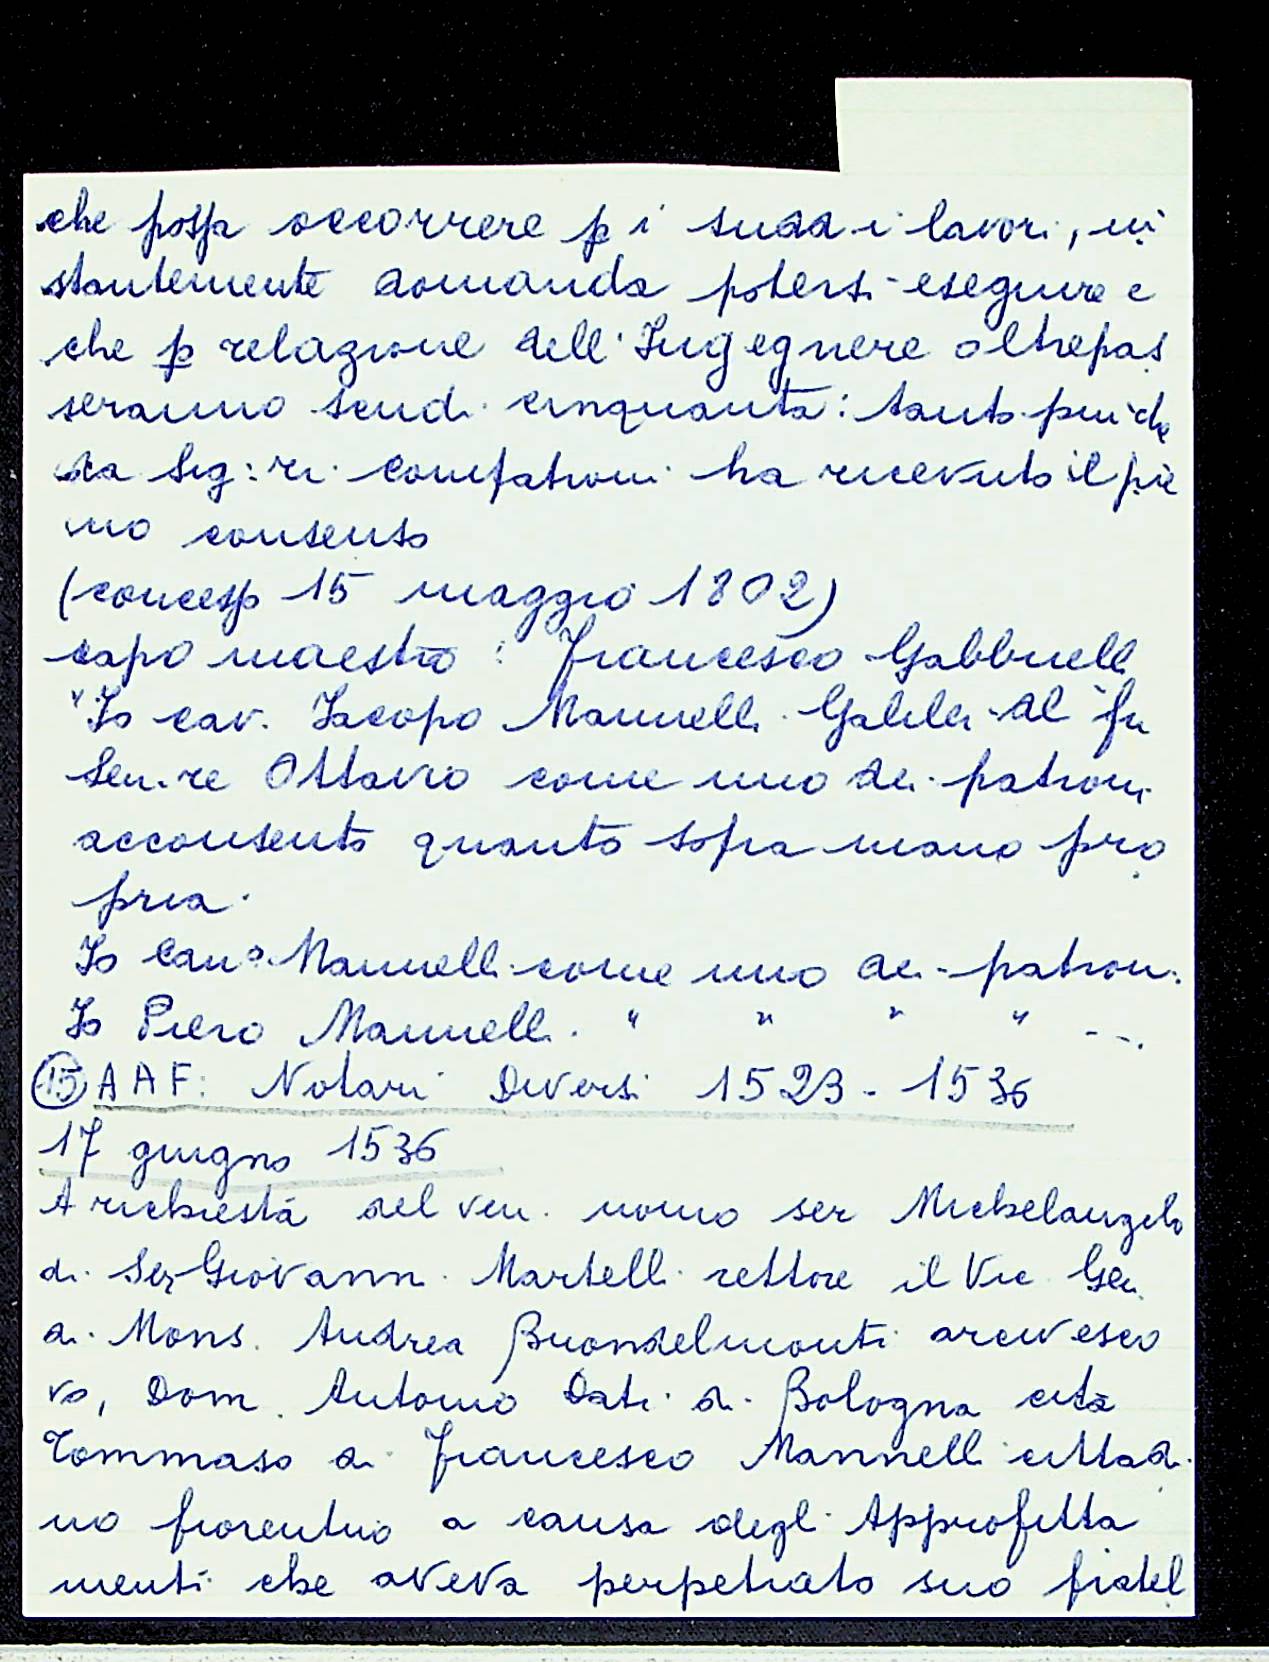 che possa occorrere p i sudd.i lavori, in
stantemente domanda potersi eseguire e
che p relazione dell'Ingegnere oltrepas
seranno scudi cinquanta: tanto più che
da Sig:ri Compatroni ha ricevuto il pie
no consenso
(concesso 15 maggio 1802)
capo maestro: Francesco Gabbrielli
"Io cav. Iacopo Mannelli Galilei del fu
Sen.re Ottavio come uno dei patroni
acconsento quanto sopra mano pro
pria.
Io Can.º Mannelli come uno dei patroni
Io Piero Mannelli " " " " ---.
15 AAF: Notari Diversi 1523-1536
17 giugno 1536
A richiesta del ven. uomo ser Michelangelo
di Ser Giovanni Martelli rettore il Vic Gen.
di Mons. Andrea Buondelmonti arcivesco
vo, Dom. Antonio Dati di Bologna cita
Tommaso di Francesco Mannelli cittadi
no fiorentino a causa degli Approfitta
menti che aveva perpetrato suo fratel